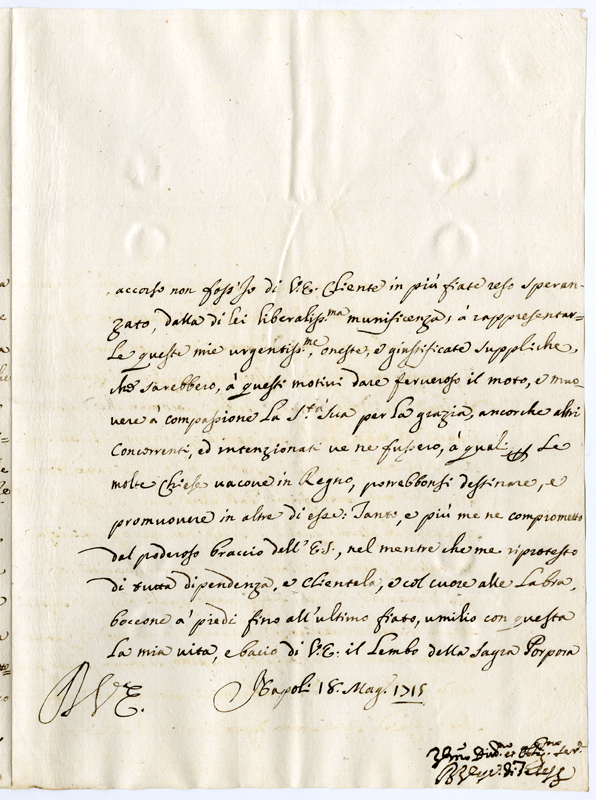 accorso non foss'Io di V.E. Cliente in più fiate reso speran-
zato, dalla di lei liberaliss.ma munificenza, à rappresentar=
Le queste mie urgentiss.me, oneste, e giustificate suppliche,
che sarebbero, à questi motivi dare fervoroso il moto, e muo
vere à compassione La S.tà Sua per la grazia, ancorche altri
Concorrenti, ed intenzionati ve ne fussero, à quali Le
molte Chiese vacove in Regno, potrebbonsi destinare, e
promuovere in altre di esse: Tanto, e più me ne comprometto
dal poderoso braccio dell'E.S., nel mentre che me riprotesto
di tutta dipendenza, e Clientela, e col cuore alle Labra,
boccone a' piedi fino all'ultimo fiato, umilio con questa
La mia vita, e bacio di V.E. il Lembo della Sagra Porpora
Napoli 18. Mag. 1715
di Teles